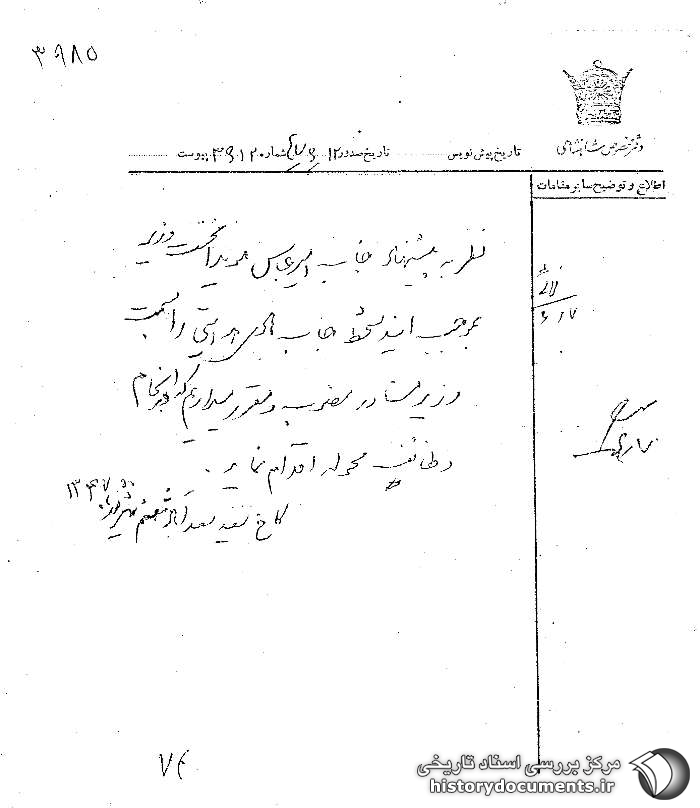 ۳۹۸۵
دفتر مخصوص شاهنشاهی
تاریخ پیش نویس تاریخ صدور ۱۲ شماره ۳۹۱۲۰ پیوست
اطلاع و توضیح سایر مقامات
نظر به پیشنهاد جناب امیرعباس هویدا نخست وزیر
بموجب این دستخط جناب هادی هدایتی را بسمت
وزیر مشاور منصوب و مقرر میداریم که در انجام
وظائف محوله اقدام نماید.
کاخ سفید سعدآباد هفتم شهریورماه ۱۳۴۷
۷۴
مرکز بررسی اسناد تاریخی
historydocuments.ir